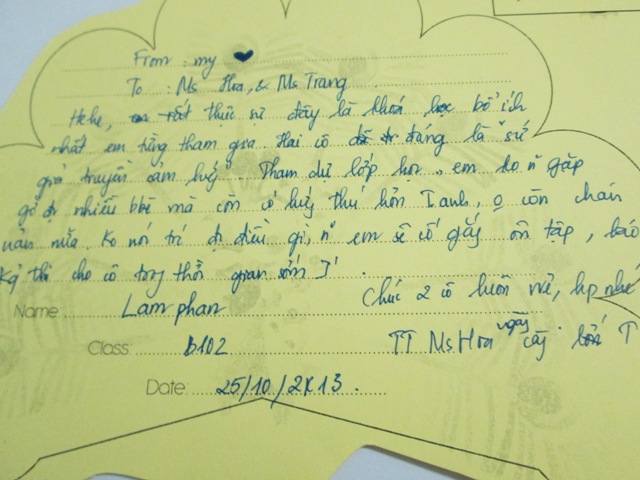 From : my ♥
To : Ms Hoa, & Ms Trang
Hehe, rất thực sự đây là khoá học bổ ích
nhất em từng tham gia. Hai cô đáng là "sứ
giả truyền cảm hứng". Tham dự lớp học, em ko n~ gặp
gỡ đc nhiều bbè mà còn có hứng thú hơn T anh, o còn chán
nản nữa. Ko nói trc đc điều gì, n~ em sẽ cố gắng ôn tập, báo
kq thi cho cô trong thời gian sớm I'.
Name Lam phan
Chúc 2 cô luôn vui, hp nhé
Class: B102
TT Ms Hoa ngày càng T
Date: 25/10/2K13.